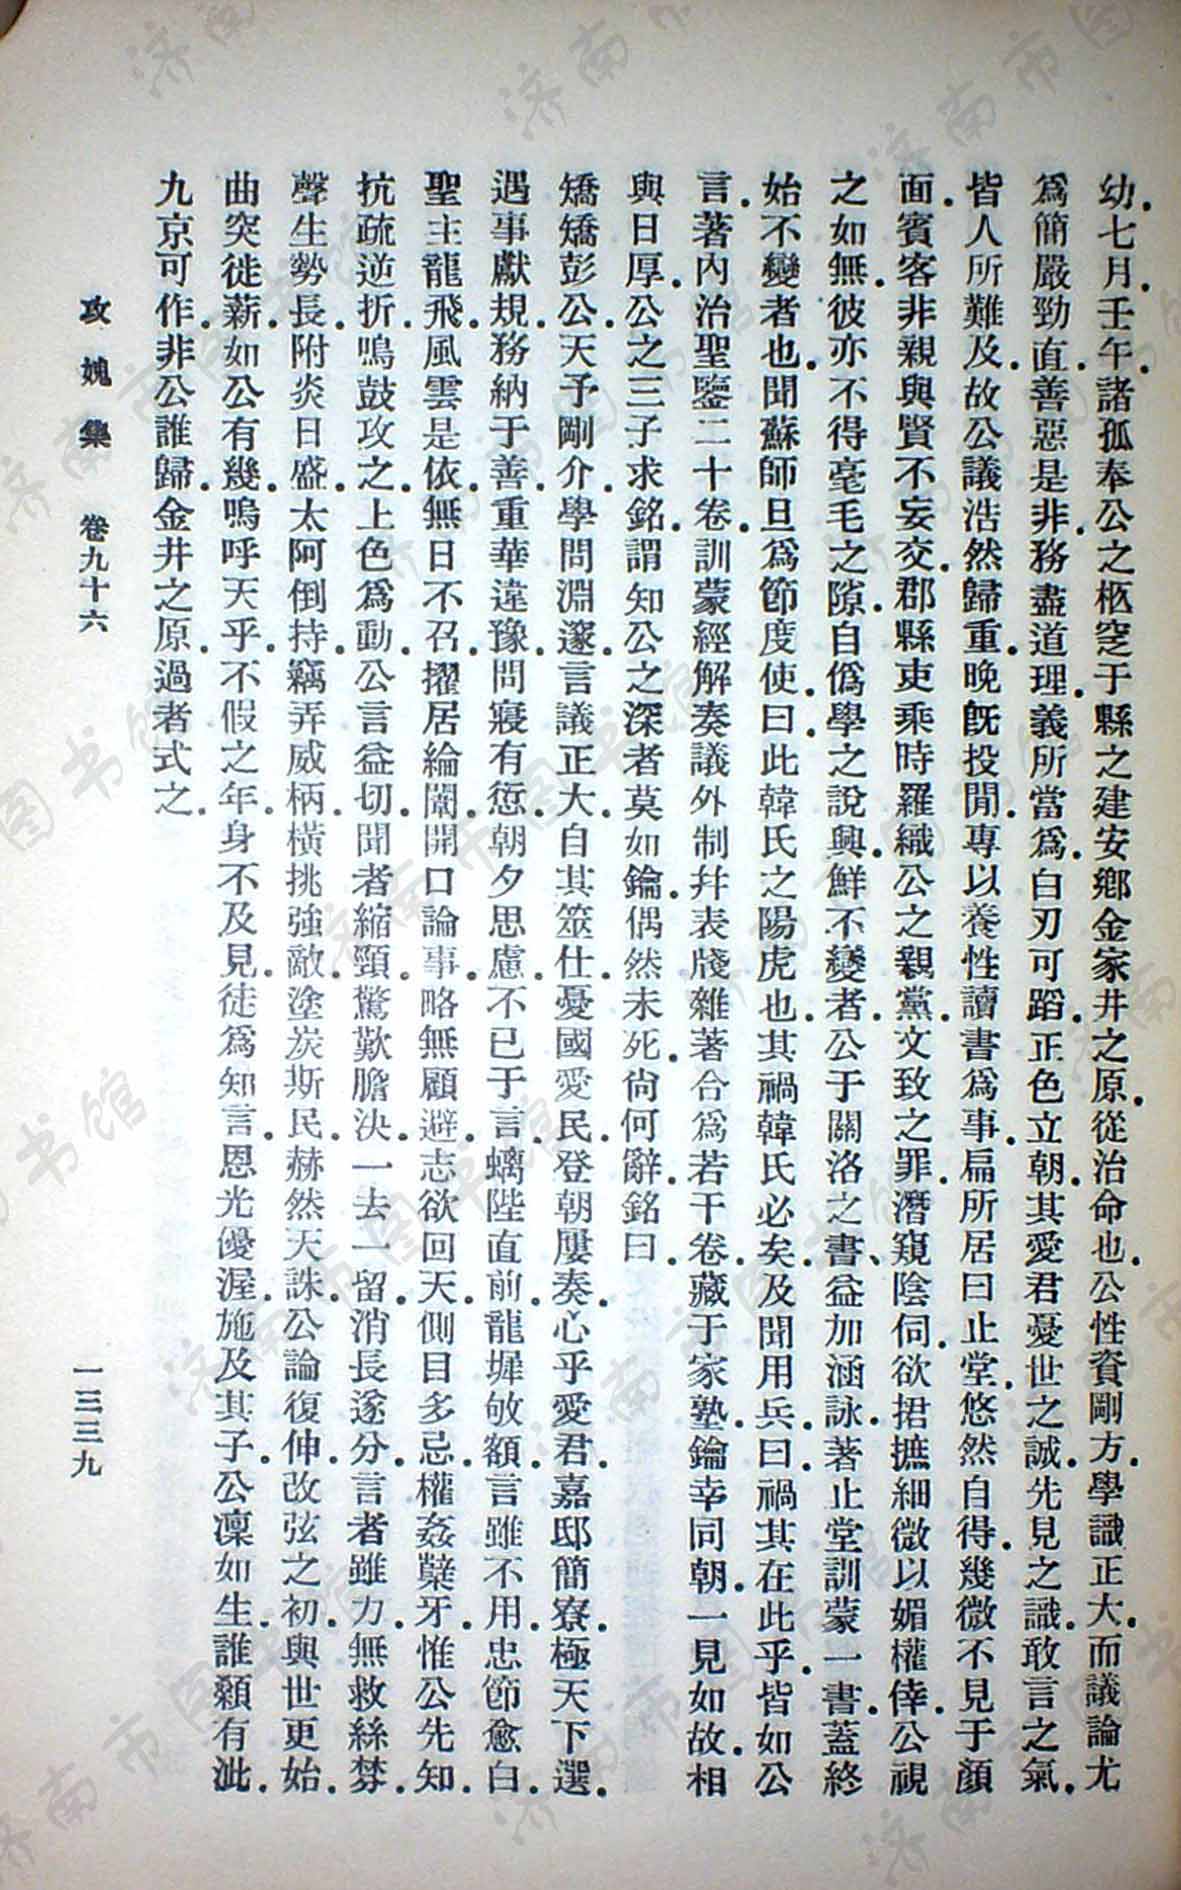 幼。七月壬午。諸孤奉公之柩窆于縣之建安鄉金家井之原。從治命也。公性資剛方。學識正大。而議論尤
爲簡嚴勁直。善惡是非。務盡道理。義所當爲。白刃可蹈。正色立朝。其愛君憂世之誠。先見之識。敢言之氣。
皆人所難及。故公議浩然歸重。晚旣投閒。專以養性讀書爲事。扁所居曰止堂。悠然自得。幾微不見于顏
面。賓客非親與賢不妄交。郡縣吏乘時羅織公之親黨。文致之罪。潛窺陰伺。欲捃摭細微以媚權倖。公視
之如無。彼亦不得毫毛之隙。自僞學之說興。鮮不變者。公于關洛之書、益加涵詠。著止堂訓蒙一書。蓋終
始不變者也。聞蘇師旦爲節度使。曰。此韓氏之陽虎也。其禍韓氏必矣。及聞用兵。曰。禍其在此乎。皆如公
言。著內治聖鑒二十卷。訓蒙經解奏議外制幷表牋雜著合爲若干卷。藏于家塾。鑰幸同朝。一見如故。相
與日厚。公之三子求銘。謂知公之深者莫如鑰。偶然未死。尙何辭。銘曰。
矯矯彭公。天予剛介。學問淵邃。言議正大。自其筮仕。憂國愛民。登朝屢奏。心乎愛君。嘉邸簡寮。極天下選。
遇事獻規。務納于善。重華違豫。問寢有愆。朝夕思慮。不已于言。螭陛直前。龍墀敂額。言雖不用。忠節愈白。
聖主龍飛。風雲是依。無日不召。擢居綸闈。開口論事。略無顧避。志欲回天。側目多忌。權姦櫱牙。惟公先知。
抗疏逆折。鳴鼓攻之。上色爲動。公言益切。聞者縮頸。驚歎膽決。一去一留。消長遂分。言者雖力。無救絲棼。
聲生勢長。附炎日盛。太阿倒持。竊弄威柄。橫挑強敵。塗炭斯民。赫然天誅。公論復伸。改弦之初。與世更始。
曲突徙薪。如公有幾。嗚呼天乎。不假之年。身不及見。徒爲知言。恩光優渥。施及其子。公凜如生。誰顙有泚。
九京可作。非公誰歸。金井之原。過者式之。
攻媿集 卷九十六
一三三九